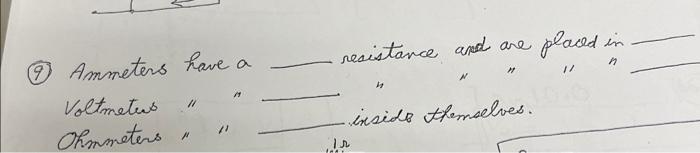 ⑨ Ammeters have a ____ resistance and are placed in ____
Voltmeters " " ____ " " " " " ____
Ohmmeters " " ____ inside themselves.
1Ω